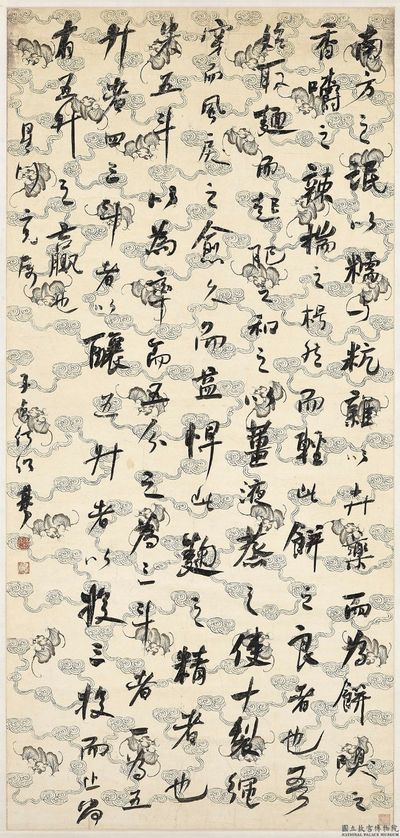 南方之氓以糯與秔雜以卉藥而為餅嗅之
香嚼之辣揣之枵然而輕此餅之良者也吾
始取麵而起肥之和之以薑液蒸之使十裂繩
穿而風戾之愈久而益悍此麴之精者也
米五斗以為率而五分之為三斗者一為五
升者四三斗者以釀五升者以投三投而止尚
有五升之贏也
國立故宮博物院
NATIONAL PALACE MUSEUM